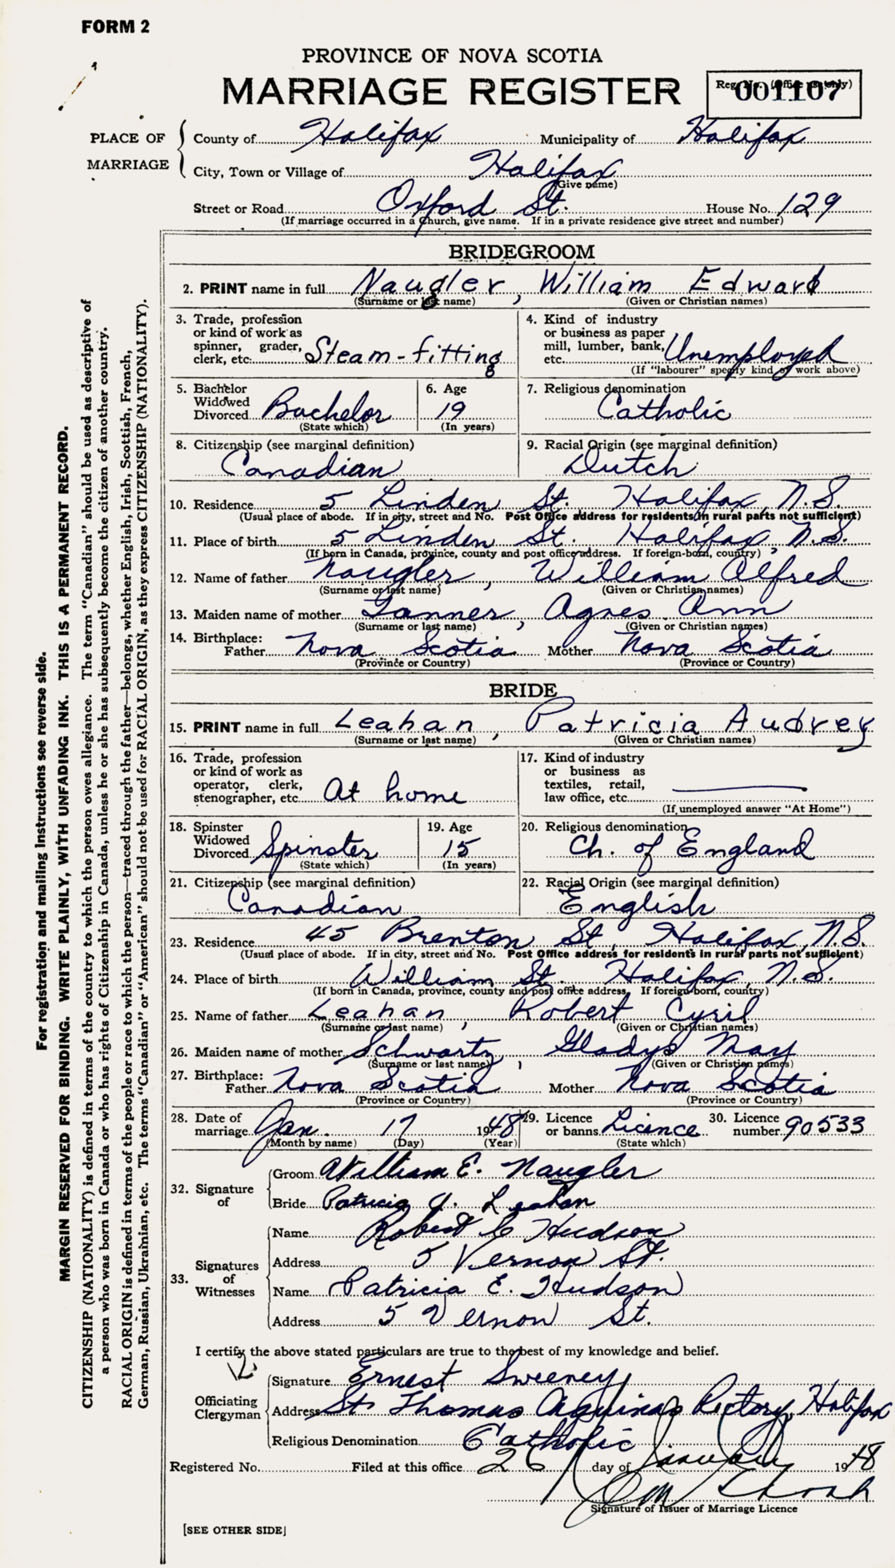 FORM 2
PROVINCE OF NOVA SCOTIA
MARRIAGE REGISTER
001107
PLACE OF MARRIAGE
County of Halifax Municipality of Halifax
City, Town or Village of Halifax
(Give name)
Street or Road Oxford St. House No. 129
(If marriage occurred in a church, give name. If in a private residence give street and number)
BRIDEGROOM
2. PRINT name in full Naugler, William Edward
(Surname or last name) (Given or Christian names)
3. Trade, profession or kind of work as spinner, grader, clerk, etc. Steam-fitting
4. Kind of industry or business as paper mill, lumber, bank, etc. Unemployed
(If "labourer" specify kind of work above)
5. Bachelor Widowed Divorced Bachelor
(State which)
6. Age 19
(In years)
7. Religious denomination Catholic
8. Citizenship (see marginal definition) Canadian
9. Racial Origin (see marginal definition) Dutch
10. Residence 5 Linden St. Halifax N.S.
(Usual place of abode. If in city, street and No. Post Office address for residents in rural parts not sufficient)
11. Place of birth 5 Linden St. Halifax, N.S.
(If born in Canada, province, county and post office address. If foreign-born, country)
12. Name of father Naugler, William Alfred
(Surname or last name) (Given or Christian names)
13. Maiden name of mother Tanner, Agnes Ann
(Surname or last name) (Given or Christian names)
14. Birthplace: Father Nova Scotia Mother Nova Scotia
(Province or Country) (Province or Country)
BRIDE
15. PRINT name in full Leahan, Patricia Audrey
(Surname or last name) (Given or Christian names)
16. Trade, profession or kind of work as operator, clerk, stenographer, etc. At home
17. Kind of industry or business as textiles, retail, law office, etc.
(If unemployed answer "At Home")
18. Spinster Widowed Divorced Spinster
(State which)
19. Age 15
(In years)
20. Religious denomination Ch. of England
21. Citizenship (see marginal definition) Canadian
22. Racial Origin (see marginal definition) English
23. Residence 45 Brenton St. Halifax, N.S.
(Usual place of abode. If in city, street and No. Post Office address for residents in rural parts not sufficient)
24. Place of birth William St. Halifax N.S.
(If born in Canada, province, county and post office address. If foreign-born, country)
25. Name of father Leahan, Robert Cyril
(Surname or last name) (Given or Christian names)
26. Maiden name of mother Schwartz, Gladys May
(Surname or last name) (Given or Christian names)
27. Birthplace: Father Nova Scotia Mother Nova Scotia
(Province or Country) (Province or Country)
28. Date of marriage Jan. 17 1948
(Month by name) (Day) (Year)
29. Licence or banns Licence
(State which)
30. Licence number 90533
32. Signature of
Groom William E. Naugler
Bride Patricia A. Leahan
33. Signatures of Witnesses
Name Robert C Hudson
Address 5 Vernon St.
Name Patricia E. Hudson
Address 5 Vernon St.
I certify the above stated particulars are true to the best of my knowledge and belief.
Officiating Clergyman
Signature Ernest Sweeney
Address St. Thomas Aquinas Rectory, Halifax
Religious Denomination Catholic
Registered No. Filed at this office 26 day of January 1948
Signature of Issuer of Marriage Licence
[SEE OTHER SIDE]
For registration and mailing instructions see reverse side.
MARGIN RESERVED FOR BINDING. WRITE PLAINLY, WITH UNFADING INK. THIS IS A PERMANENT RECORD.
CITIZENSHIP (NATIONALITY) is defined in terms of the country to which the person owes allegiance. The term "Canadian" should be used as descriptive of
a person who was born in Canada or who has rights of Citizenship in Canada, unless he or she has subsequently become the citizen of another country.
RACIAL ORIGIN is defined in terms of the people or race to which the person—traced through the father—belongs, whether English, Irish, Scottish, French,
German, Russian, Ukrainian, etc. The terms "Canadian" or "American" should not be used for RACIAL ORIGIN, as they express CITIZENSHIP (NATIONALITY).